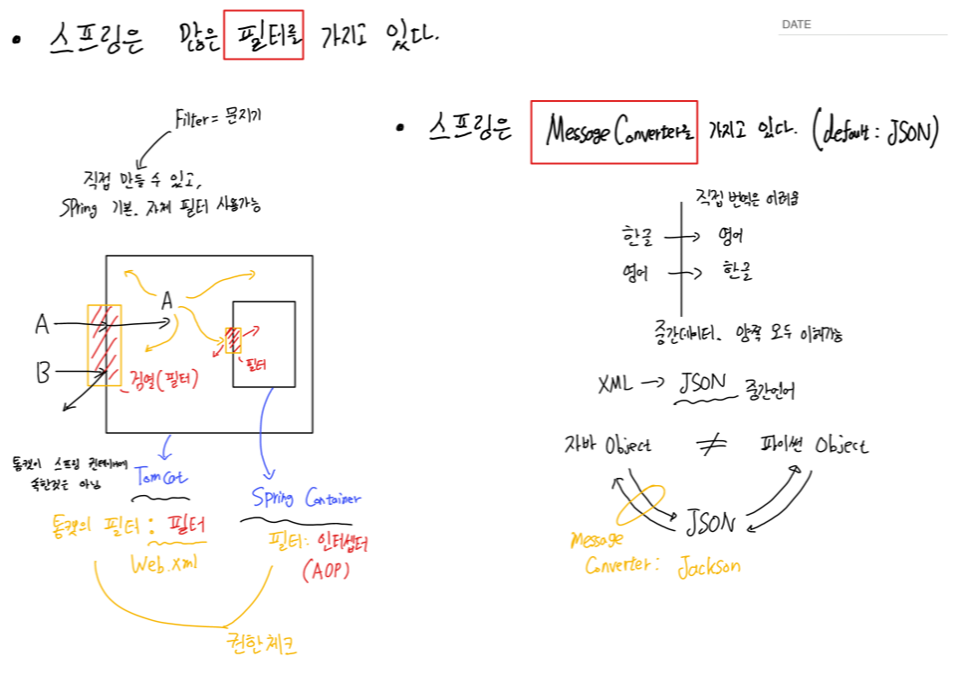 • 스프링은 많은 필터를 가지고 있다.
DATE
Filter = 문지기
직접 만들 수 있고,
Spring 기본. 자체 필터 사용가능
A
A
B
검열(필터)
필터
톰캣이 스프링 컨테이너에
속한것은 아님
Tomcat
Spring Container
톰캣의 필터 : 필터
Web.xml
필터: 인터셉터
(AOP)
권한체크
• 스프링은 Message Converter를 가지고 있다. (default : JSON)
직접 번역은 어려움
한글 → 영어
영어 → 한글
중간데이터. 양쪽 모두 이해가능
XML → JSON 중간언어
자바 Object ≠ 파이썬 Object
JSON
Message
Converter : Jackson